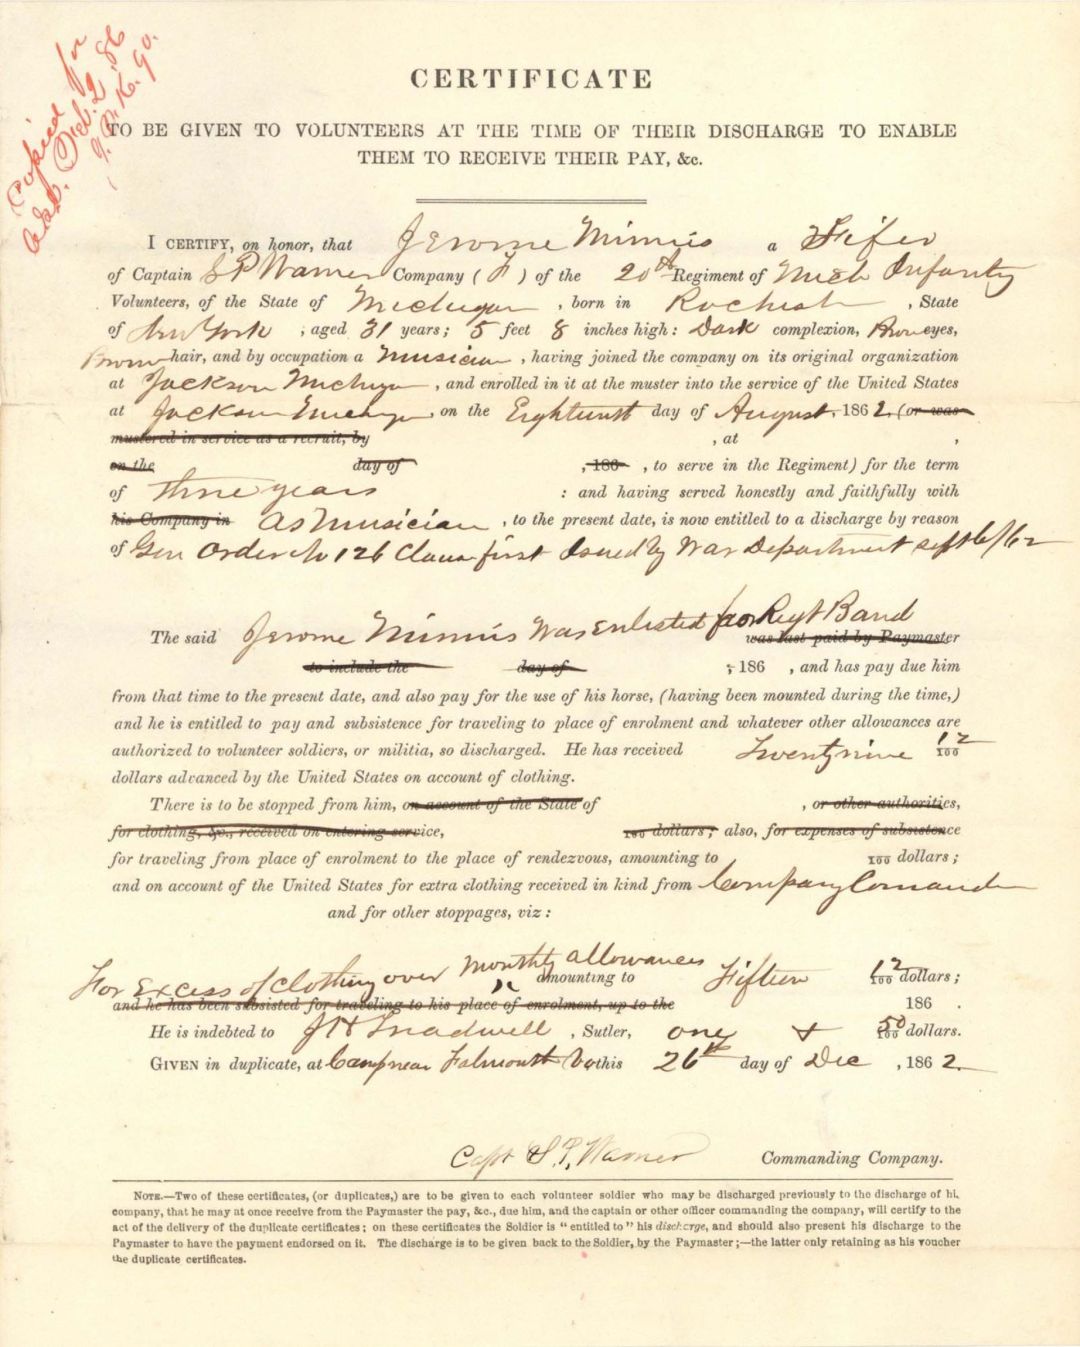 Copied for
Dec. 2, 86
CERTIFICATE
TO BE GIVEN TO VOLUNTEERS AT THE TIME OF THEIR DISCHARGE TO ENABLE
THEM TO RECEIVE THEIR PAY, &c.
I CERTIFY, on honor, that Jerome Mimnis a Fifer
of Captain S P Warner Company ( F ) of the 20th Regiment of Mich Infantry
Volunteers, of the State of Michigan , born in Rochester , State
of New York , aged 31 years; 5 feet 8 inches high: Dark complexion, Brown eyes,
Brown hair, and by occupation a Musician , having joined the company on its original organization
at Jackson Michigan , and enrolled in it at the muster into the service of the United States
at Jackson Michigan on the Eighteenth day of August, 1862. (or was
mustered in service as a recruit, by , at ,
on the day of , 186 , to serve in the Regiment) for the term
of three years : and having served honestly and faithfully with
his Company in as Musician , to the present date, is now entitled to a discharge by reason
of Gen Order No 126 Clause first Issued by War Department sept 6/62
The said Jerome Mimnis was enlisted for Regt Band was last paid by Paymaster
to include the day of , 186 , and has pay due him
from that time to the present date, and also pay for the use of his horse, (having been mounted during the time,)
and he is entitled to pay and subsistence for traveling to place of enrolment and whatever other allowances are
authorized to volunteer soldiers, or militia, so discharged. He has received Twenty nine 12/100
dollars advanced by the United States on account of clothing.
There is to be stopped from him, on account of the State of , or other authorities,
for clothing, &c., received on entering service, 100 dollars; also, for expenses of subsistence
for traveling from place of enrolment to the place of rendezvous, amounting to 100 dollars;
and on account of the United States for extra clothing received in kind from Company Comander
and for other stoppages, viz:
For Excess of clothing over monthly allowances amounting to Fifteen 12/100 dollars;
and he has been subsisted for traveling to his place of enrolment, up to the 186 .
He is indebted to J H Treadwell , Sutler, one + 50/100 dollars.
GIVEN in duplicate, at Camp near Falmouth Va this 26th day of Dec , 1862.
Capt S. P. Warner Commanding Company.
NOTE.—Two of these certificates, (or duplicates,) are to be given to each volunteer soldier who may be discharged previously to the discharge of hi.
company, that he may at once receive from the Paymaster the pay, &c., due him, and the captain or other officer commanding the company, will certify to the
act of the delivery of the duplicate certificates; on these certificates the Soldier is "entitled to" his discharge, and should also present his discharge to the
Paymaster to have the payment endorsed on it. The discharge is to be given back to the Soldier, by the Paymaster;—the latter only retaining as his voucher
the duplicate certificates.